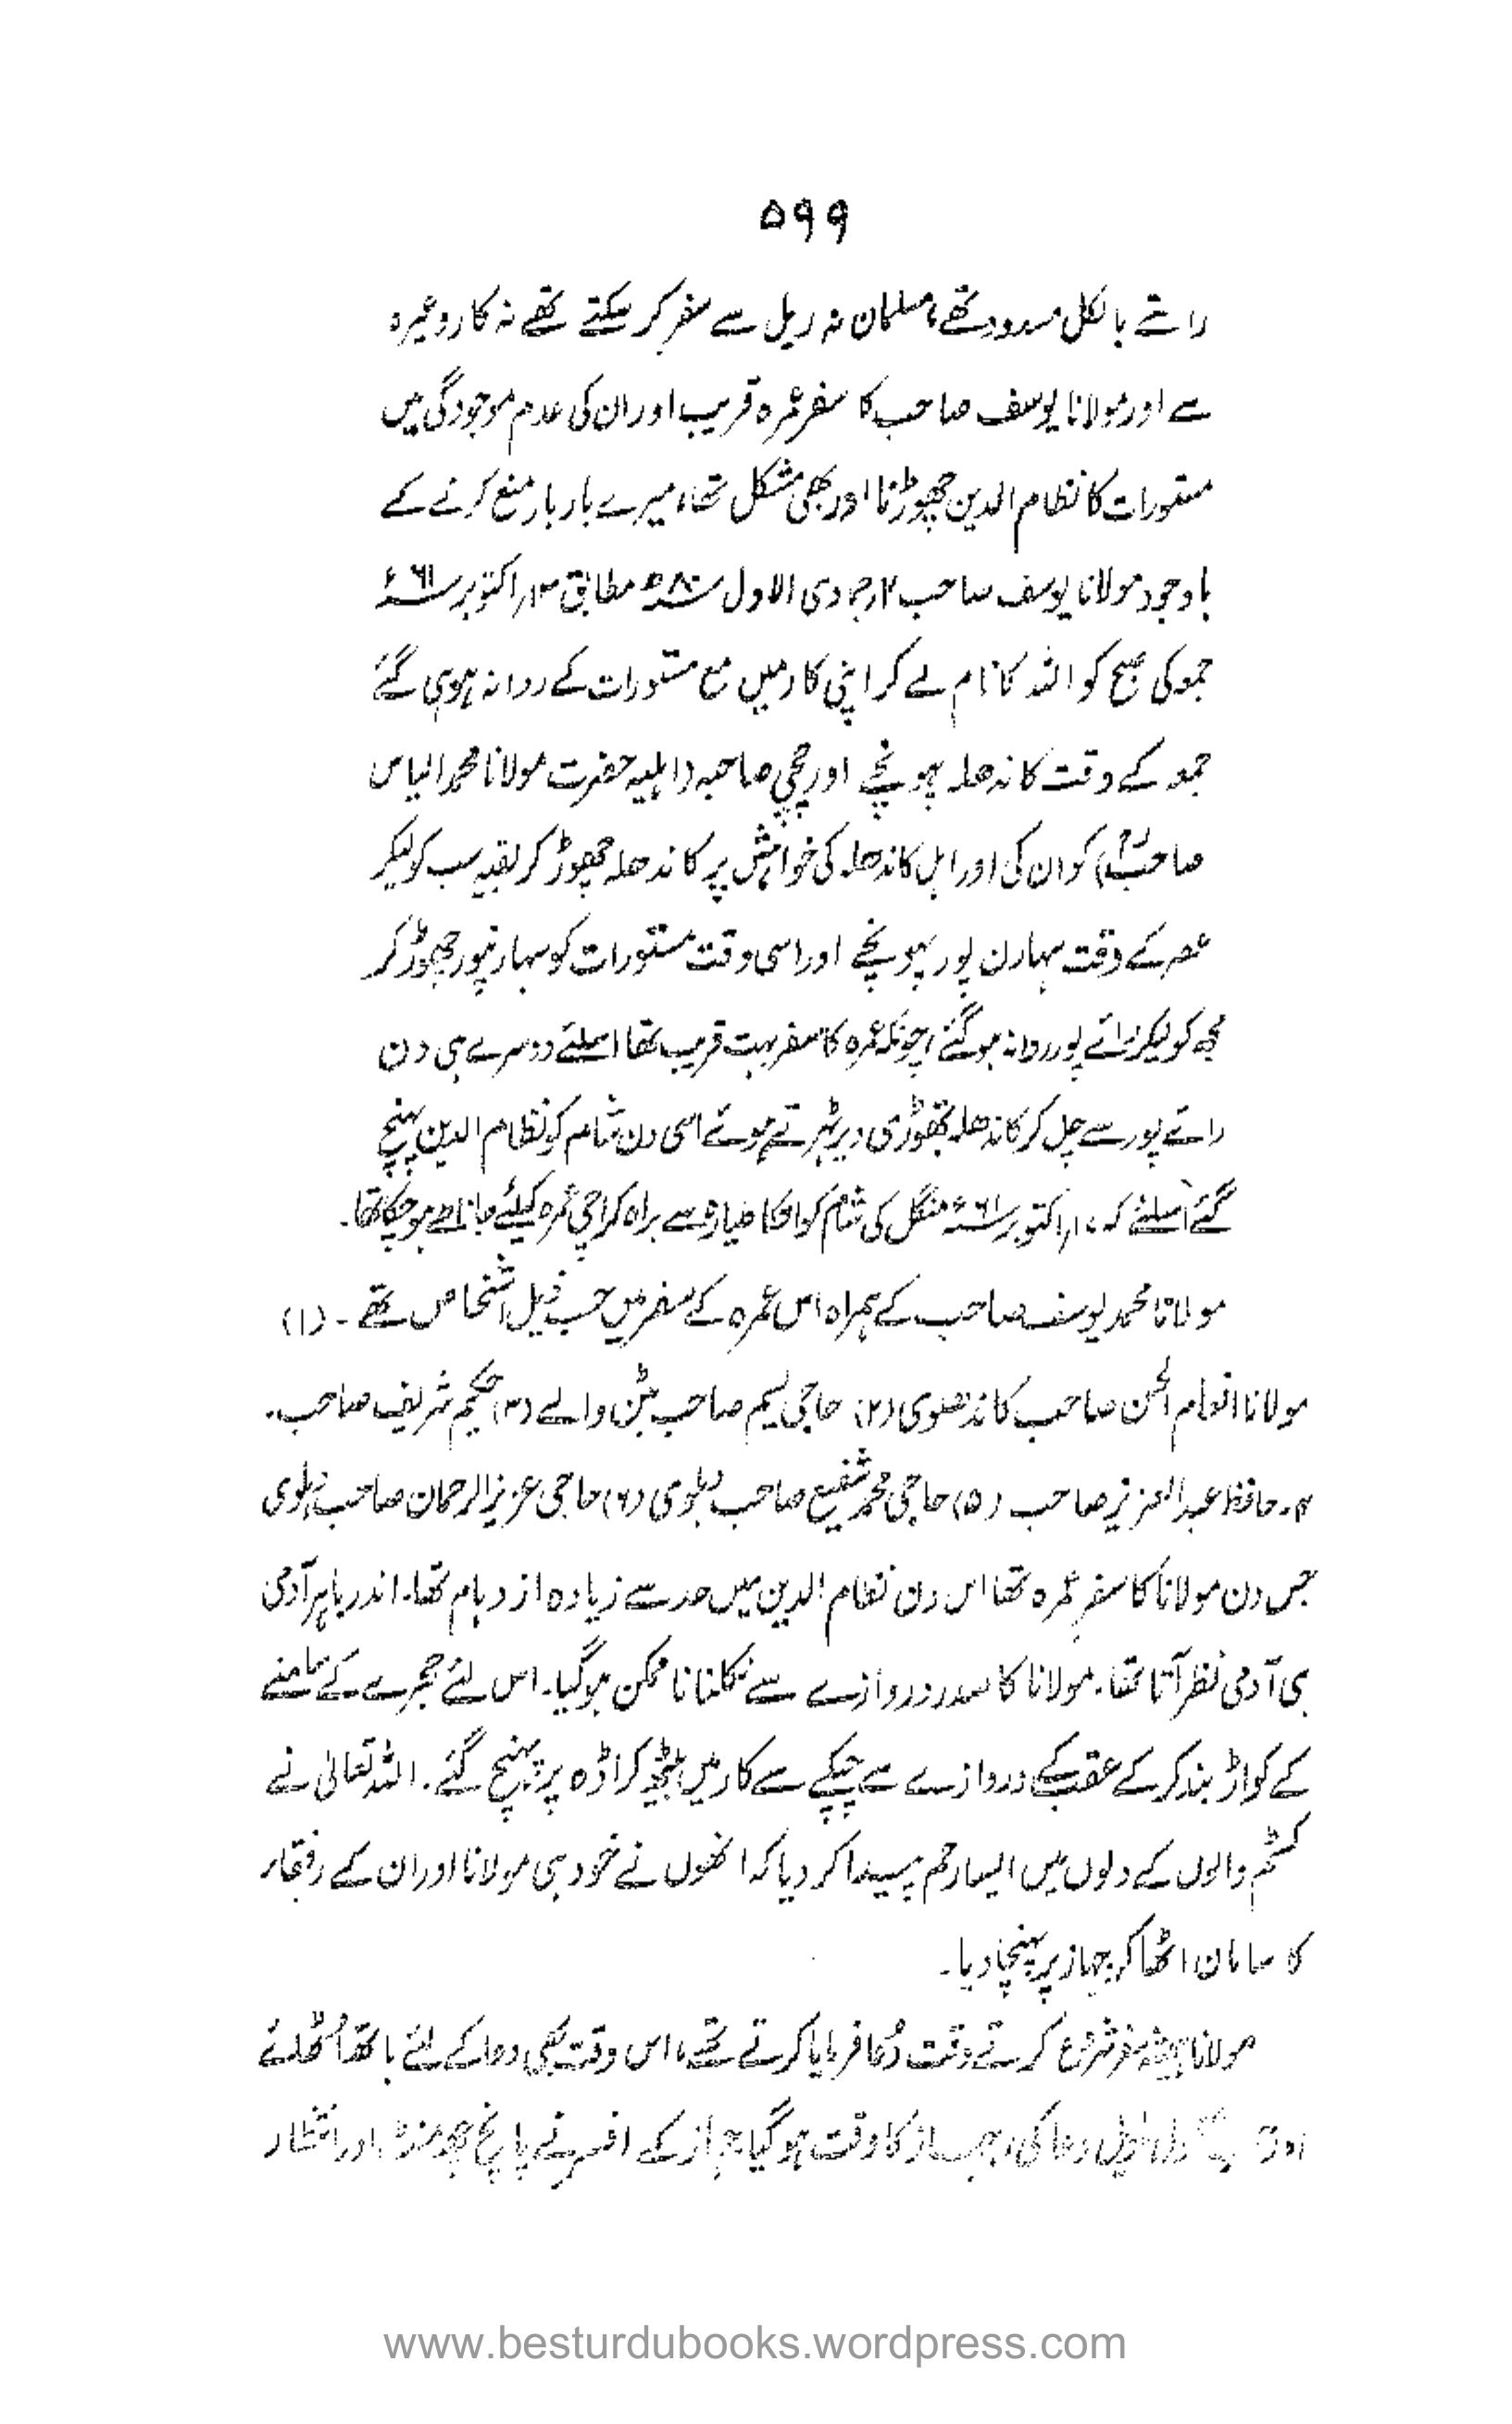 ۵۹۹
راستے بالکل مسدود تھے، مسلمان نہ ریل سے سفر کر سکتے تھے نہ کار وغیرہ
سے اور مولانا یوسف صاحب کا سفر عمرہ قریب اور ان کی عدم موجودگی میں
مستورات کا نظام الدین چھوڑنا اور بھی مشکل تھا، میرے بار بار منع کرنے کے
باوجود مولانا یوسف صاحب ۲ر جمادی الاول ۸۰ھ مطابق ۱۳ر اکتوبر ۶۱ء
جمعہ کی صبح کو اللہ کا نام لے کر اپنی کار میں مع مستورات کے روانہ ہو ہی گئے
جمعہ کے وقت کاندھلہ پہونچے اور چچی صاحبہ (اہلیہ حضرت مولانا محمد الیاس
صاحبؒ) کو ان کی اور اہل کاندھلہ کی خواہش پر کاندھلہ چھوڑ کر بقیہ سب کو لیکر
عصر کے وقت سہارن پور پہونچے اور اسی وقت مستورات کو سہارنپور چھوڑ کر
مجھ کو لیکر رائے پور روانہ ہو گئے، چونکہ عمرہ کا سفر بہت قریب تھا اسلئے دوسرے ہی دن
رائے پور سے چل کر کاندھلہ تھوڑی دیر ٹہرتے ہوئے اسی دن شام کو نظام الدین پہنچ
گئے اسلئے کہ ۱۷ر اکتوبر ۶۱ء منگل کی شام کو انکا طیارہ سے براہ کراچی عمرہ کیلئے جانا طے ہو چکا تھا۔
مولانا محمد یوسف صاحب کے ہمراہ اس عمرہ کے سفر میں حسب ذیل اشخاص تھے۔ (۱)
مولانا انعام الحسن صاحب کاندھلوی (۲) حاجی نسیم صاحب بٹن والے (۳) حکیم شریف صاحب۔
۴۔ حافظ عبد العزیز صاحب (۵) حاجی محمد شفیع صاحب دہلوی (۶) حاجی عزیز الرحمان صاحب دہلوی
جس دن مولانا کا سفر عمرہ تھا اس دن نظام الدین میں حد سے زیادہ ازدہام تھا۔ اندر باہر آدمی
ہی آدمی نظر آتا تھا۔ مولانا کا صدر دروازے سے نکلنا ناممکن ہو گیا۔ اس لئے حجرے کے سامنے
کے کواڑ بند کر کے عقب کے دروازے سے چپکے سے کار میں بیٹھ کر اڈہ پر پہنچ گئے۔ اللہ تعالیٰ نے
کسٹم والوں کے دلوں میں ایسا رحم پیدا کر دیا کہ انھوں نے خود ہی مولانا اور ان کے رفقاء
کا سامان اٹھا کر جہاز پر پہنچا دیا۔
مولانا ہمیشہ سفر شروع کرتے وقت دُعا فرمایا کرتے تھے، اس وقت بھی دعا کے لئے ہاتھ اُٹھائے
اور طویل دعا کی، جہاز کا وقت ہو گیا جہاز کے افسر نے پانچ چھ منٹ اور انتظار
www.besturdubooks.wordpress.com